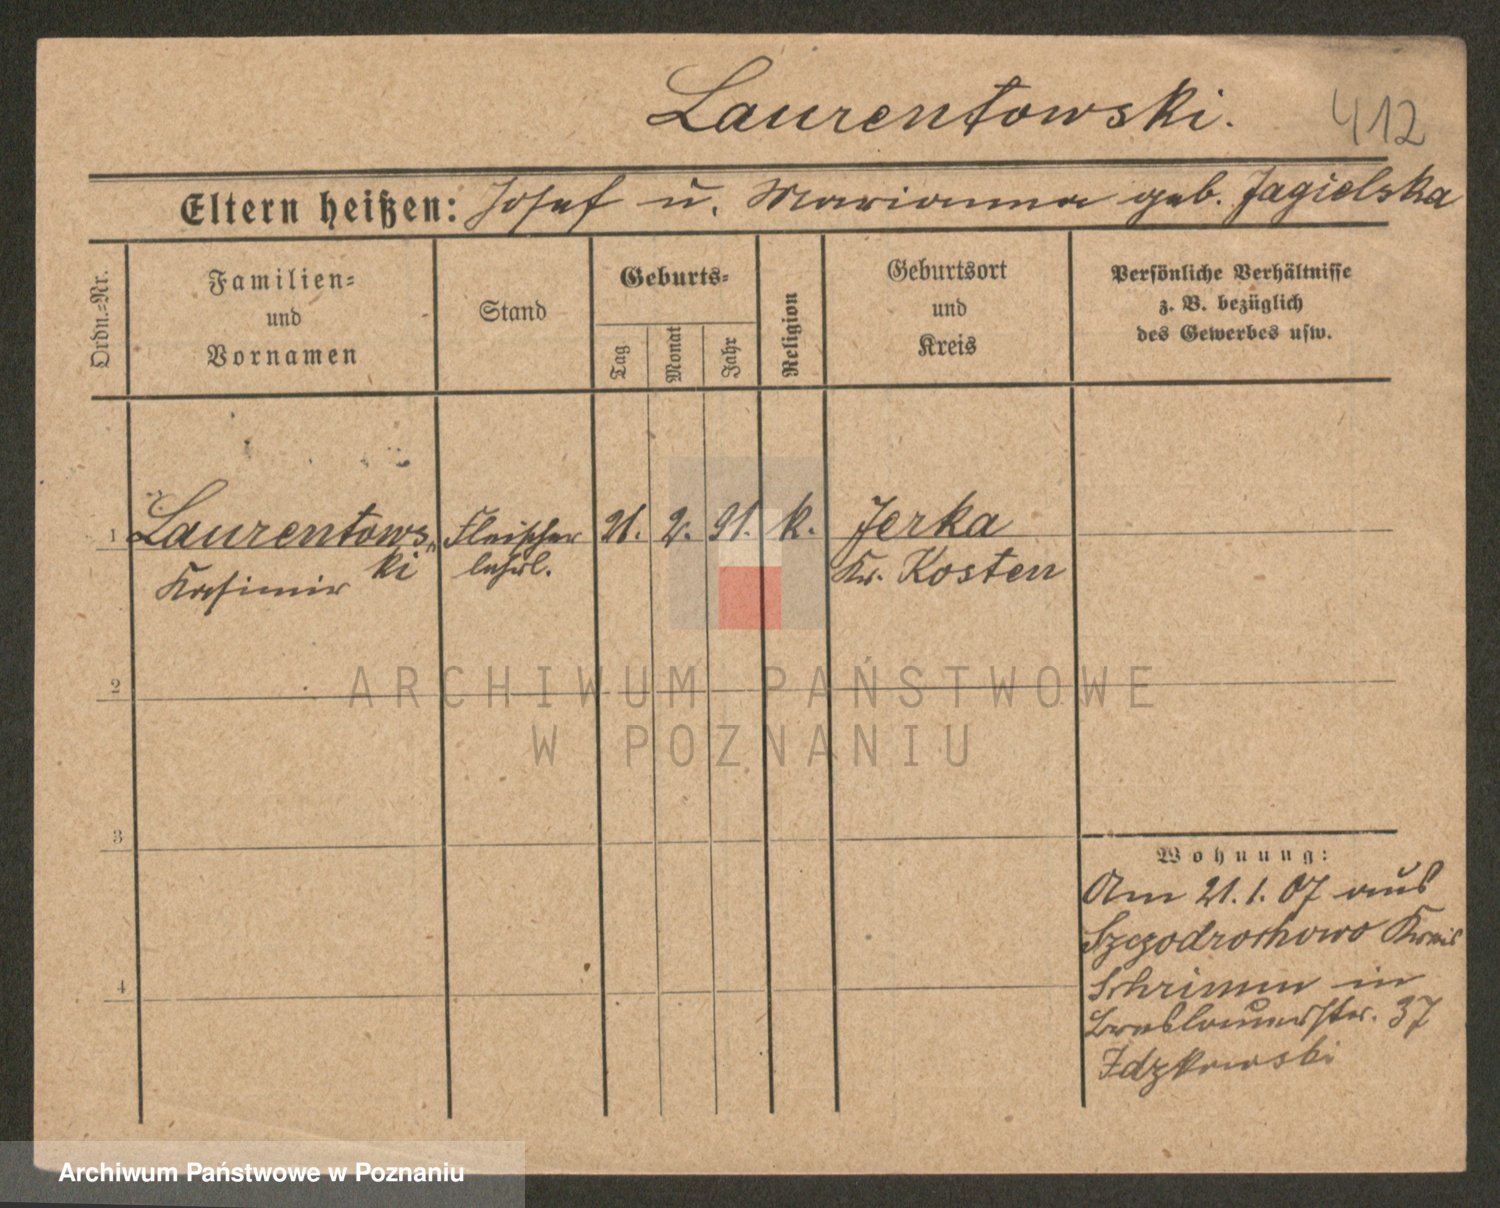 Laurentowski.
412
Eltern heißen: Josef u. Marianna geb. Jagielska
Ordn.=Nr.
Familien=
und
Vornamen
Stand
Geburts=
Tag
Monat
Jahr
Religion
Geburtsort
und
Kreis
Persönliche Verhältnisse
z. B. bezüglich
des Gewerbes usw.
1
Laurentows„
ki
Kasimir
Fleischer
lehrl.
21.
2.
91.
k.
Jerka
Kr. Kosten
2
ARCHIWUM PAŃSTWOWE
W POZNANIU
3
4
Wohnung:
Am 21. 1. 07 aus
Szczodrochowo Kreis
Schrimm in
Breslauerstr. 37
Idzkowski
Archiwum Państwowe w Poznaniu